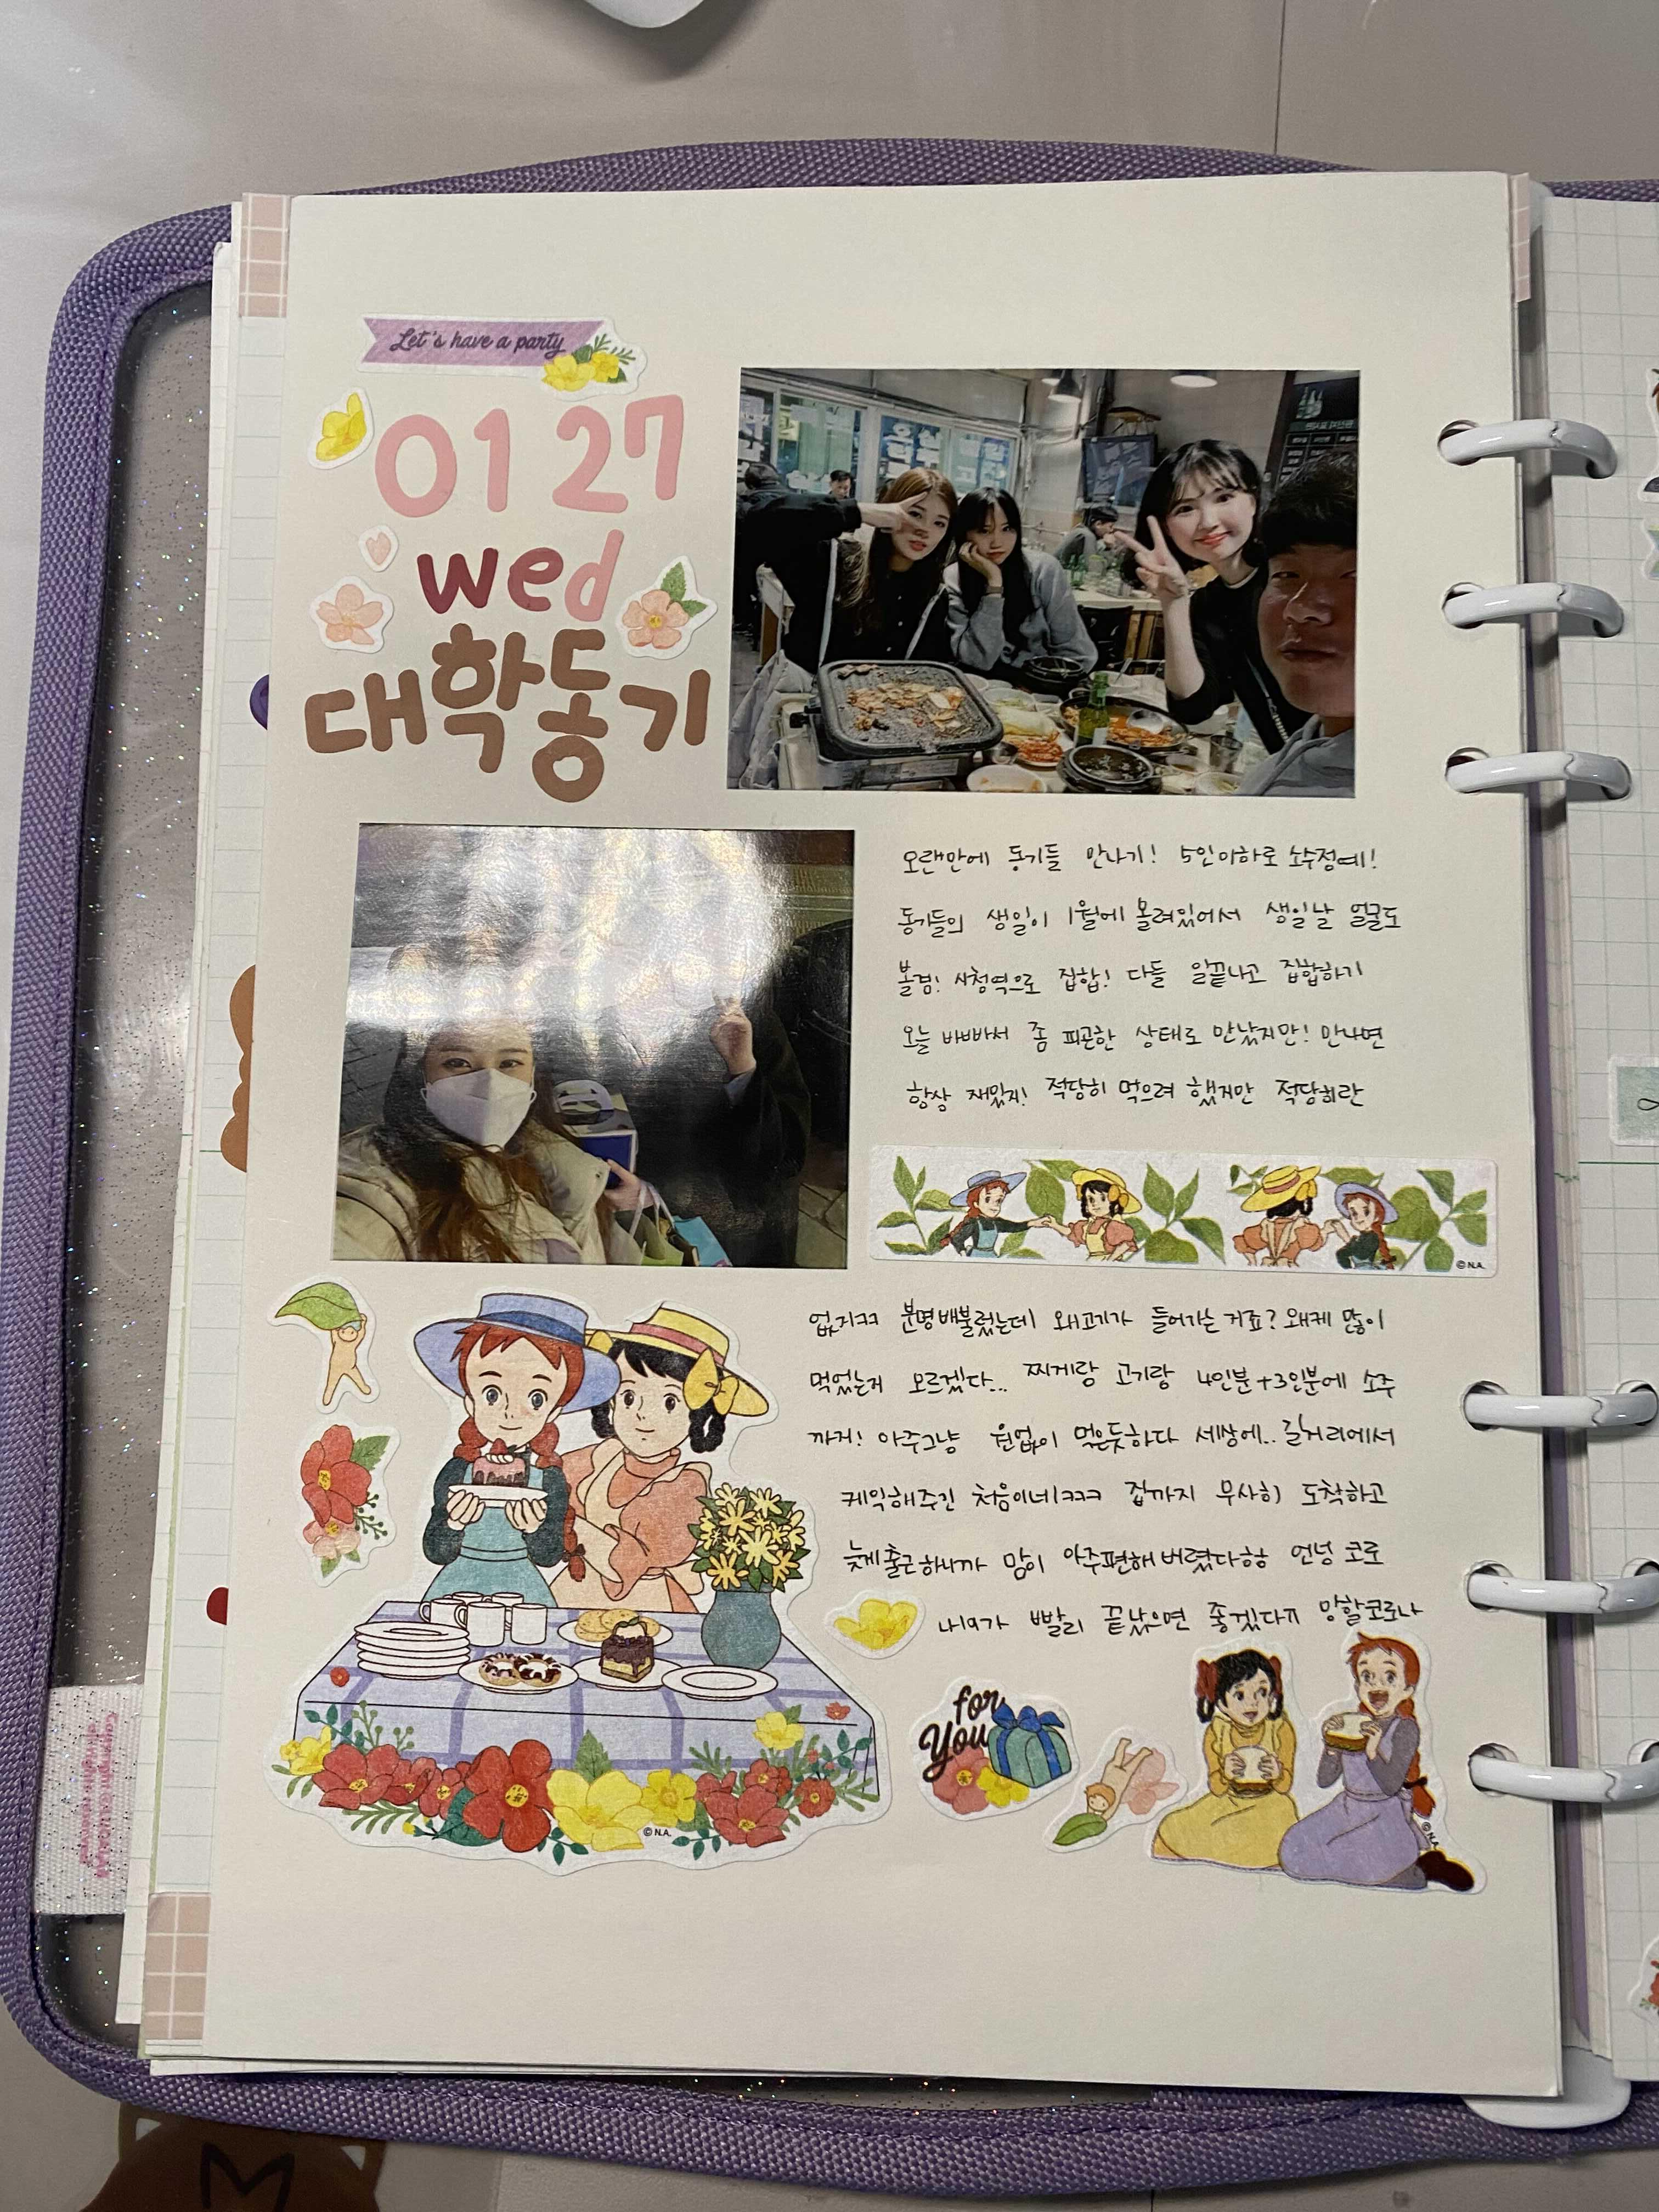 Let's have a party
01 27
wed
대학동기
오랜만에 동기들 만나기! 5인이하로 소수정예!
동기들의 생일이 1월에 몰려있어서 생일날 얼굴도
볼겸! 시청역으로 집합! 다들 일끝나고 집합하기
오늘 바빠서 좀 피곤한 상태로 만났지만! 만나면
항상 재밌지! 적당히 먹으려 했지만 적당히란
©N.A.
없지ㅋㅋ 분명배불렀는데 왜고기가 들어가는 거죠? 왜케 많이
먹었는지 모르겠다... 찌게랑 고기랑 4인분+3인분에 소주
까지! 아주그냥 원없이 먹은듯하다 세상에.. 길거리에서
케익해주긴 처음이네ㅋㅋㅋ 집까지 무사히 도착하고
늦게출근하니까 맘이 아주편해버렸다하하 언넝 코로
나19가 빨리 끝났으면 좋겠다ㅠ 망할코로나
for
You
©N.A.